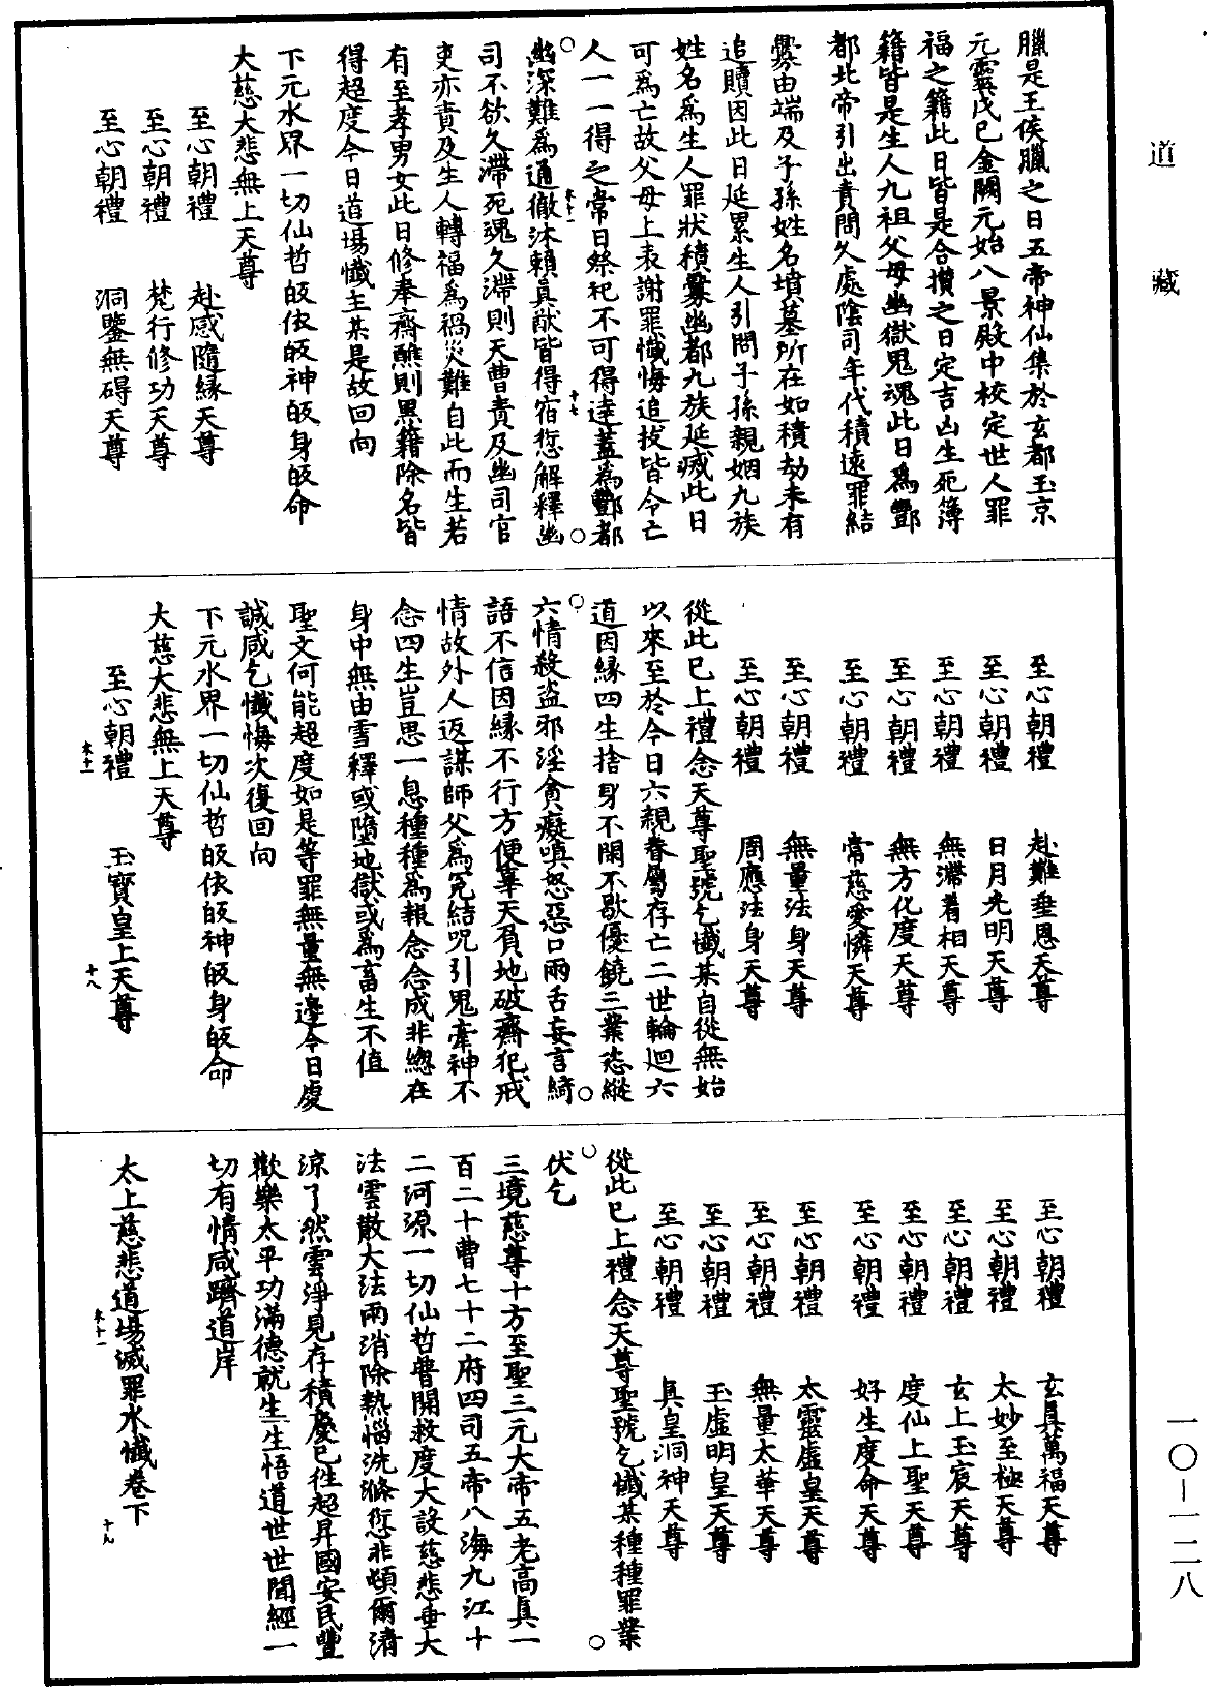 道藏
一〇—一二八
臘是王侯臘之日五帝神仙集於玄都玉京
元靈戊巳金闕元始八景殿中校定世人罪
福之籍此日皆是合攢之日定吉凶生死簿
籍皆是生人九祖父母幽獄鬼魂此日為酆
都北帝引出責問久處陰司年代積遠罪結
釁由端及子孫姓名墳墓所在如積劫未有
追贖因此日延累生人引問子孫親姻九族
姓名為生人罪狀積釁幽都九族延滅此日
可為亡故父母上表謝罪懺悔追拔皆令亡
人一一得之常日祭祀不可得達蓋為酆都
幽深難為通徹沐賴真猷皆得宿愆解釋幽
司不欲久滯死魂久滯則天曹責及幽司官
吏亦責及生人轉福為禍災難自此而生若
有至孝男女此日修奉齋醮則黑籍除名皆
得超度今日道場懺主某是故回向
下元水界一切仙哲皈依皈神皈身皈命
大慈大悲無上天尊
至心朝禮 赴感隨緣天尊
至心朝禮 梵行修功天尊
至心朝禮 洞鑒無碍天尊
至心朝禮 赴難垂恩天尊
至心朝禮 日月光明天尊
至心朝禮 無滯着相天尊
至心朝禮 無方化度天尊
至心朝禮 常慈愛憐天尊
至心朝禮 無量法身天尊
至心朝禮 周應法身天尊
從此已上禮念天尊聖號乞懺某自從無始
以來至於今日六親眷屬存亡二世輪迴六
道因緣四生捨身不閑不歇優饒三業恣縱
六情殺盜邪淫貪癡嗔怒惡口兩舌妄言綺
語不信因緣不行方便辜天負地破齋犯戒
情故外人返謀師父為冤結呪引鬼牽神不
念四生豈思一息種種為報念念成非總在
身中無由雪釋或墮地獄或為畜生不值
聖文何能超度如是等罪無量無邊今日虔
誠咸乞懺悔次復回向
下元水界一切仙哲皈依皈神皈身皈命
大慈大悲無上天尊
至心朝禮 玉寶皇上天尊
至心朝禮 玄真萬福天尊
至心朝禮 太妙至極天尊
至心朝禮 玄上玉宸天尊
至心朝禮 度仙上聖天尊
至心朝禮 好生度命天尊
至心朝禮 太靈虛皇天尊
至心朝禮 無量太華天尊
至心朝禮 玉虛明皇天尊
至心朝禮 真皇洞神天尊
從此已上禮念天尊聖號乞懺某種種罪業
伏乞
三境慈尊十方至聖三元大帝五老高真一
百二十曹七十二府四司五帝八海九江十
二河源一切仙哲普開救度大設慈悲垂大
法雲散大法雨消除熱惱洗滌愆非頓爾清
涼了然雲淨見存積慶已往超昇國安民豐
歡樂太平功滿德就生生悟道世世聞經一
切有情咸躋道岸
太上慈悲道場滅罪水懺卷下
十七
十八
十九